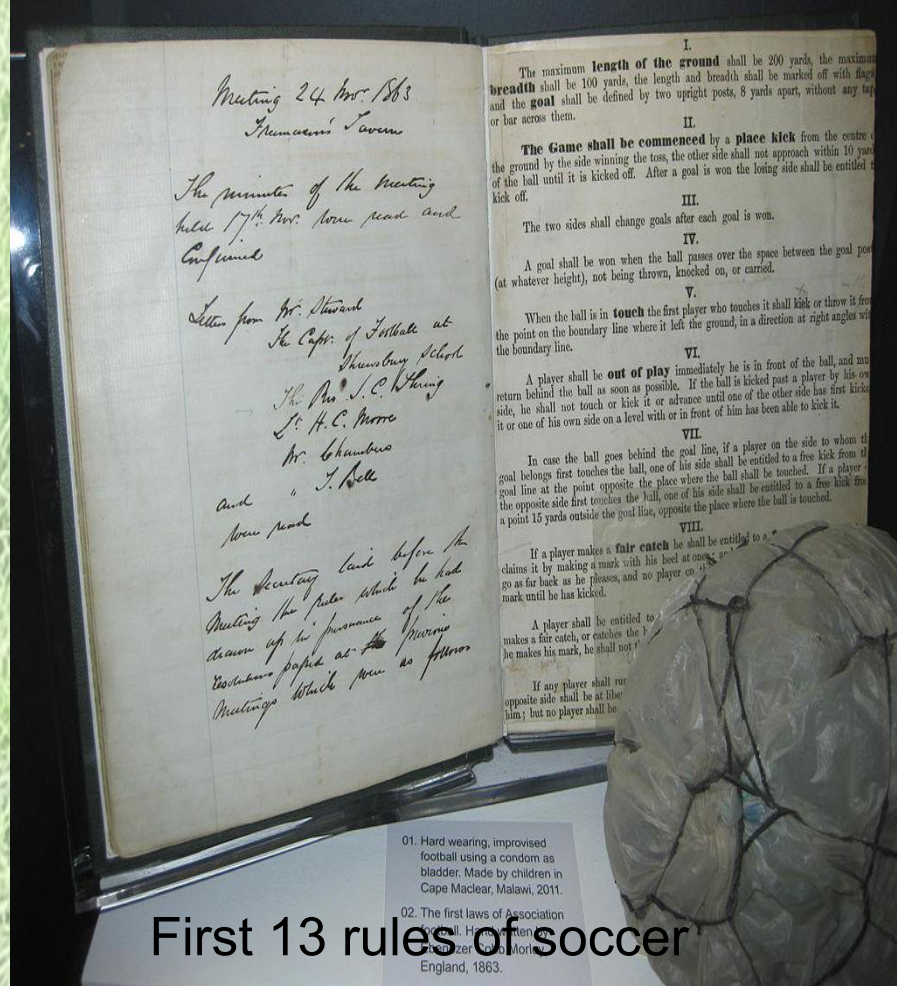 Meeting 24 Nov. 1863
Freemason's Tavern
The minutes of the Meeting
held 17th Nov. were read and
Confirmed
Letters from Mr. Steward
The Capt. of Football at
Shrewsbury School
The Rev. J. C. Thring
Lt. H. C. Moore
Mr. Chambers
and " J. Bell
were read
The Secretary laid before the
Meeting the rules which he had
drawn up in pursuance of the
resolutions passed at the previous
Meetings which were as follows
I.
The maximum length of the ground shall be 200 yards, the maximum
breadth shall be 100 yards, the length and breadth shall be marked off with flags
and the goal shall be defined by two upright posts, 8 yards apart, without any tap
or bar across them.
II.
The Game shall be commenced by a place kick from the centre
the ground by the side winning the toss, the other side shall not approach within 10 yard
of the ball until it is kicked off. After a goal is won the losing side shall be entitled
kick off.
III.
The two sides shall change goals after each goal is won.
IV.
A goal shall be won when the ball passes over the space between the goal post
(at whatever height), not being thrown, knocked on, or carried.
V.
When the ball is in touch the first player who touches it shall kick or throw it from
the point on the boundary line where it left the ground, in a direction at right angles wit
the boundary line.
VI.
A player shall be out of play immediately he is in front of the ball, and mu
return behind the ball as soon as possible. If the ball is kicked past a player by his ow
side, he shall not touch or kick it or advance until one of the other side has first kicke
it or one of his own side on a level with or in front of him has been able to kick it.
VII.
In case the ball goes behind the goal line, if a player on the side to whom th
goal belongs first touches the ball, one of his side shall be entitled to a free kick from th
goal line at the point opposite the place where the ball shall be touched. If a player
the opposite side first touches the ball, one of his side shall be entitled to a free kick from
a point 15 yards outside the goal line, opposite the place where the ball is touched.
VIII.
If a player makes a fair catch he shall be entitled to a
claims it by making a mark with his heel at once; and
go as far back as he pleases, and no player on
mark until he has kicked.
A player shall be entitled to
makes a fair catch, or catches the
he makes his mark, he shall not
If any player shall run
opposite side shall be at libe
him; but no player shall be
01. Hard wearing, improvised
football using a condom as
bladder. Made by children in
Cape Maclear, Malawi, 2011.
02. The first laws of Association
football. Hand written by
Ebenezer Cobb Morley
England, 1863.
First 13 rules of soccer